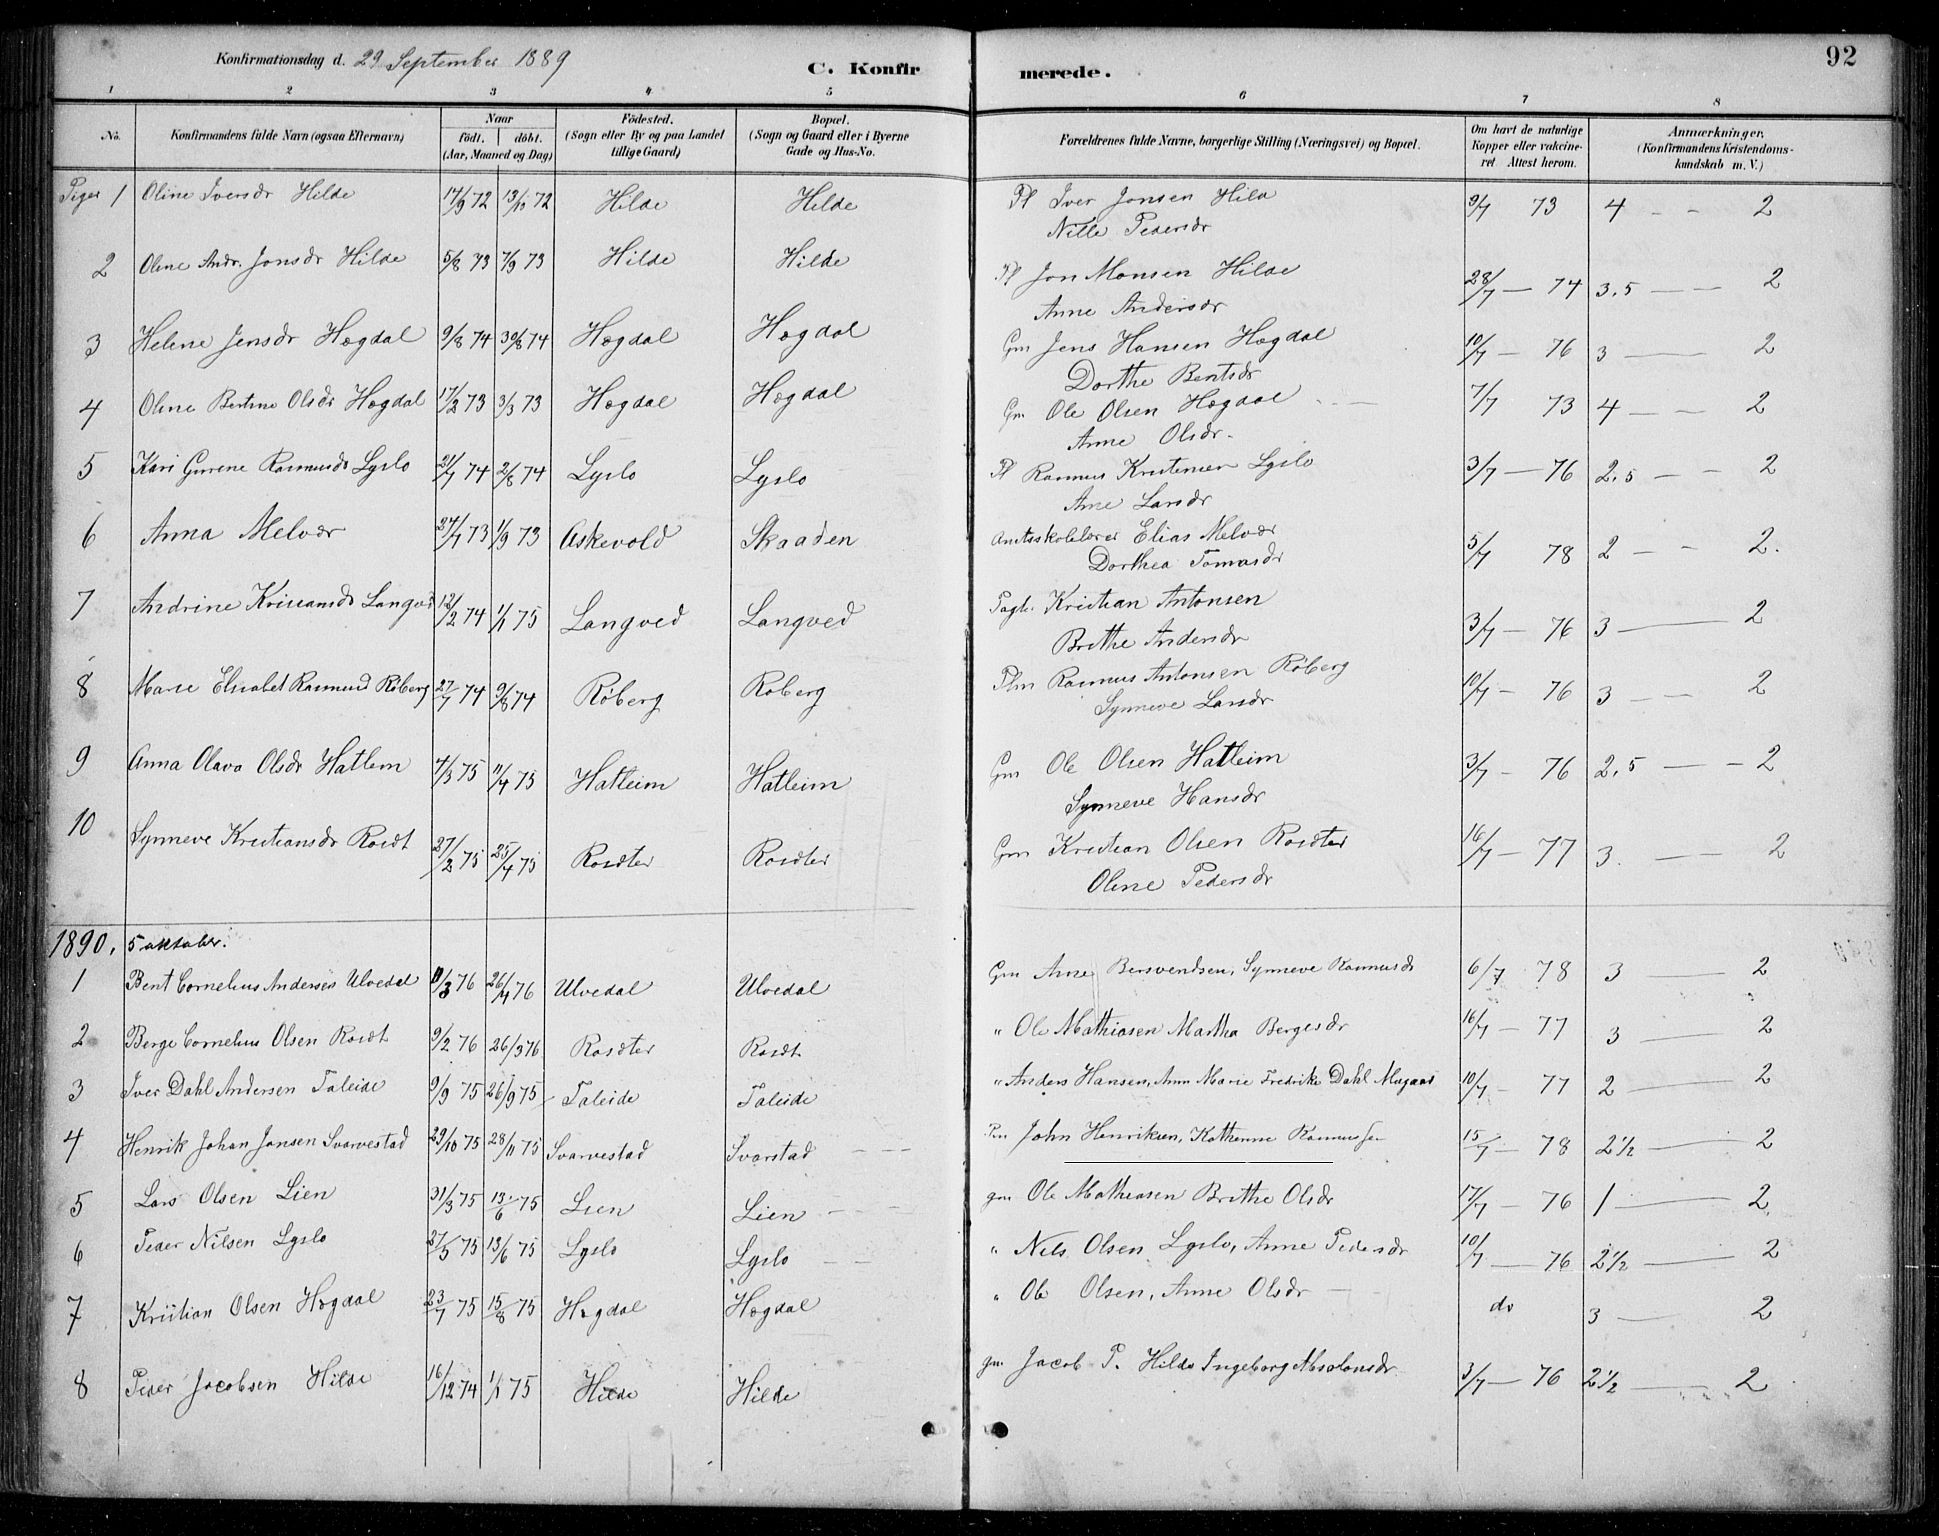 Konfirmationsdag d. 29 September 1889 C. Konfirmerede. 92
1 2 3 4 5 6 7 8
No. Konfirmandens fulde Navn (ogsaa Efternavn) Naar födt. döbt. (Aar, Maaned og Dag) Födested. (Sogn eller By og paa Landet tillige Gaard) Bopæl. (Sogn og Gaard eller i Byerne Gade og Hus-No. Forældrenes fulde Navne, borgerlige Stilling (Næringsvei) og Bopæl. Om havt de naturlige Kopper eller vakcineret. Attest herom. Anmærkninger. (Konfirmandens Kristendomskundskab m. V.)
Piger 1 Oline Iversdr Hilde 17/9 72 13/10 72 Hilde Hilde Pl Iver Jonsen Hilde 9/7 73 4 - - 2
Nille Pedersdr
2 Oline Andr. Jonsdr Hilde 5/8 73 7/9 73 Hilde Hilde Pl Jon Monsen Hilde 28/7 — 74 3,5 — — 2
Anne Andersdr
3 Helene Jensdr Hogdal 9/8 74 30/8 74 Hogdal Hogdal Gm Jens Hansen Hogdal 10/7 — 76 3 — 2
Dorthe Bentsdr
4 Oline Bertine Olsdr Hogdal 17/2 73 3/3 73 Hogdal Hogdal Gm Ole Olsen Hogdal 7/7 73 4 — — 2
Anne Olsdr.
5 Kari Gurene Rasmusdr Lyslo 21/7 74 2/8 74 Lyslo Lyslo Pl Rasmus Kristensen Lyslo 3/7 — 76 2,5 — - 2
Ane Larsdr
6 Anna Melvær 24/7 73 1/9 73 Askevold Skaaden Amtsskolelærer Elias Melvær 5/7 78 2 - - 2.
Dorthea Tomasdr
7 Andrine Kristiansdr Langved 12/12 74 1/1 75 Langved Langved Pagt. Kristian Antonsen 3/7 — 76 3 — 2
Brithe Andersdr
8 Marie Elisabet Rasmusd Röberg 27/7 74 9/8 74 Röberg Roberg Plm Rasmus Antonsen Röberg 10/7 - 76 3 — - 2
Synneve Larsdr
9 Anna Olava Olsdr Hatlem 4/3 75 11/4 75 Hatleim Hatleim Gm Ole Olsen Hatleim 3/7 - 76 2,5 — - 2
Synneve Hansdr
10 Synneve Kristiansdr Rosdt 27/2 75 25/4 75 Rosdter Rosdter Gm Kristian Olsen Rosdter 16/7 — 77 3. — — 2
Oline Pedersdr
1890. 5 oktober.
1 Bent Cornelius Andersen Ulvedal 11/3 76 26/4 76 Ulvedal Ulvedal Gm Arne Bersvendsen, Synneve Rasmusdr 6/7 78 3 — 2
2 Berge Cornelius Olsen Rosdt 9/2 76 26/3 76 Rosdter Rosdt " Ole Mathiasen Martha Bergesdr 16/7 - 77 3 — 2
3 Iver Dahl Andersen Taleide 9/9 75 26/9 75 Taleide Taleide " Anders Hansen, Ann Marie Fredrike Dahl 10/7 - 77 2 — 2
4 Henrik Johan Jonsen Svarvestad 29/10 75 28/11 75 Svarvestad Svarstad John Henriksen, Kathrine 15/7 — 78 2½ — 2
5 Lars Olsen Lien 31/3 75 13/6 75 Lien Lien gm Ole Mathiasen Brithe Olsdr 17/7 - 76 1 — 2
6 Peder Nilsen Lyslo 27/5 75 13/6 75 Lyslo Lyslo " Nils Olsen Lyslo, Anne Pedersdr 10/7 — 76 2½ — 2
7 Kristian Olsen Hogdal 23/7 75 15/8 75 Hogdal Hogdal " Ole Olsen, Anne Olsdr do 3 — 2
8 Peder Jacobsen Hilde 16/12 74 1/1 75 Hilde Hilde gm Jacob P. Hilde Ingeborg Absolonsdr 3/7 — 76 2½ — 2